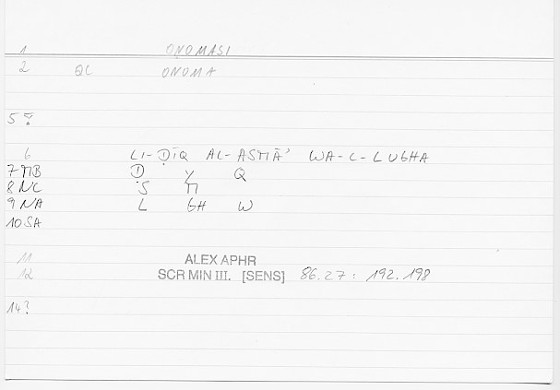 1 ONOMASI
2 QL ONOMA
5 ?
6 LI-ḌĪQ AL-ASMĀʾ WA-L-LUGHA
7 MB Ḍ Y Q
8 NC S M
9 NA L GH W
10 SA
11 ALEX APHR
12 SCR MIN III. [SENS] 86.27 : 192.198
14 ?